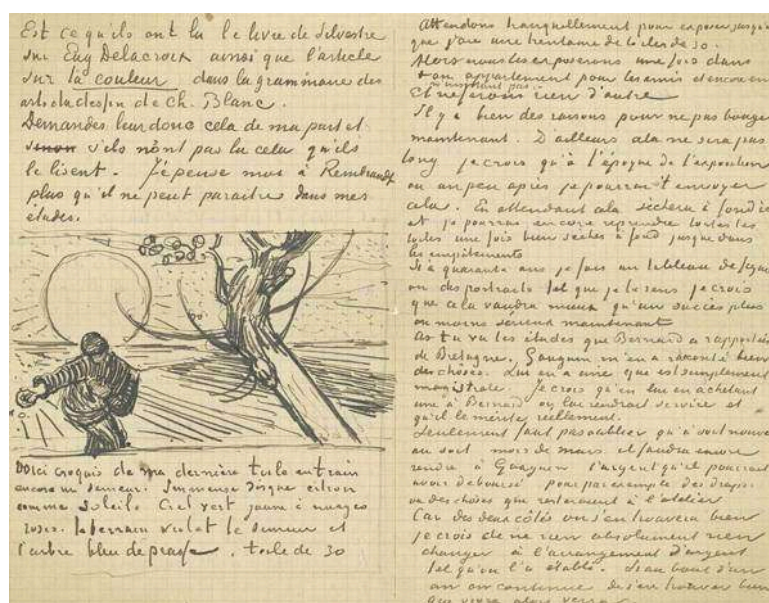 Est ce qu'ils ont lu le livre de Silvestre
sur Eug Delacroix ainsi que l'article
sur la couleur dans la grammaire des
arts du dessin de Ch. Blanc.
Demandes leur donc cela de ma part et
sinon s'ils n'ont pas lu cela qu'ils
le lisent. J'épense moi à Rembrandt
plus qu'il ne peut paraitre dans mes
études.
Voici croquis de ma dernière toile en train
encore un semeur. Immense disque citron
comme soleil. Ciel vert jaune à nuages
roses. le terrain violet le semeur et
l'arbre bleu de prusse. toile de 30
Attendons tranquillement pour exposer jusqu'à
que j'aie une trentaine de toiles de 30.
Alors nous les exposerons une fois dans
ton appartement pour les amis et encore en
pas
et ne ferons rien d'autre
Il y a bien des raisons pour ne pas bouger
maintenant. D'ailleurs cela ne sera pas
long je crois qu'à l'époque de l'exposition
ou un peu après je pourrai t'envoyer
cela. En attendant cela sèchera à fond ici
et je pourrai encore reprendre toutes les
toiles une fois bien sèches à fond jusque dans
les empâtements
Si à quarante ans je fais un tableau de figures
ou des portraits tel que je le sens je crois
que cela vaudra mieux qu'un succès plus
ou moins sérieux maintenant
As tu vu les études que Bernard a rapportées
de Bretagne. Gauguin m'en a raconté bien
des choses. Lui en a une que est simplement
magistrale. Je crois qu'en lui en achetant
une à Bernard on lui rendrait service et
qu'il le mérite réellement.
Seulement faut pas oublier qu'à soit nouvel
an soit mois de mars il faudra encore
rendre à Gauguin l'argent qu'il pourrait
avoir deboursé pour par exemple des draps
ou des choses que resteraient à l'atelier
Car des deux côtés on s'en trouvera bien
je crois de ne rien absolument rien
changer à l'arrangement d'argent
tel qu'on l'a établi. Si au bout d'un
an on continue de s'en trouver bien
verra